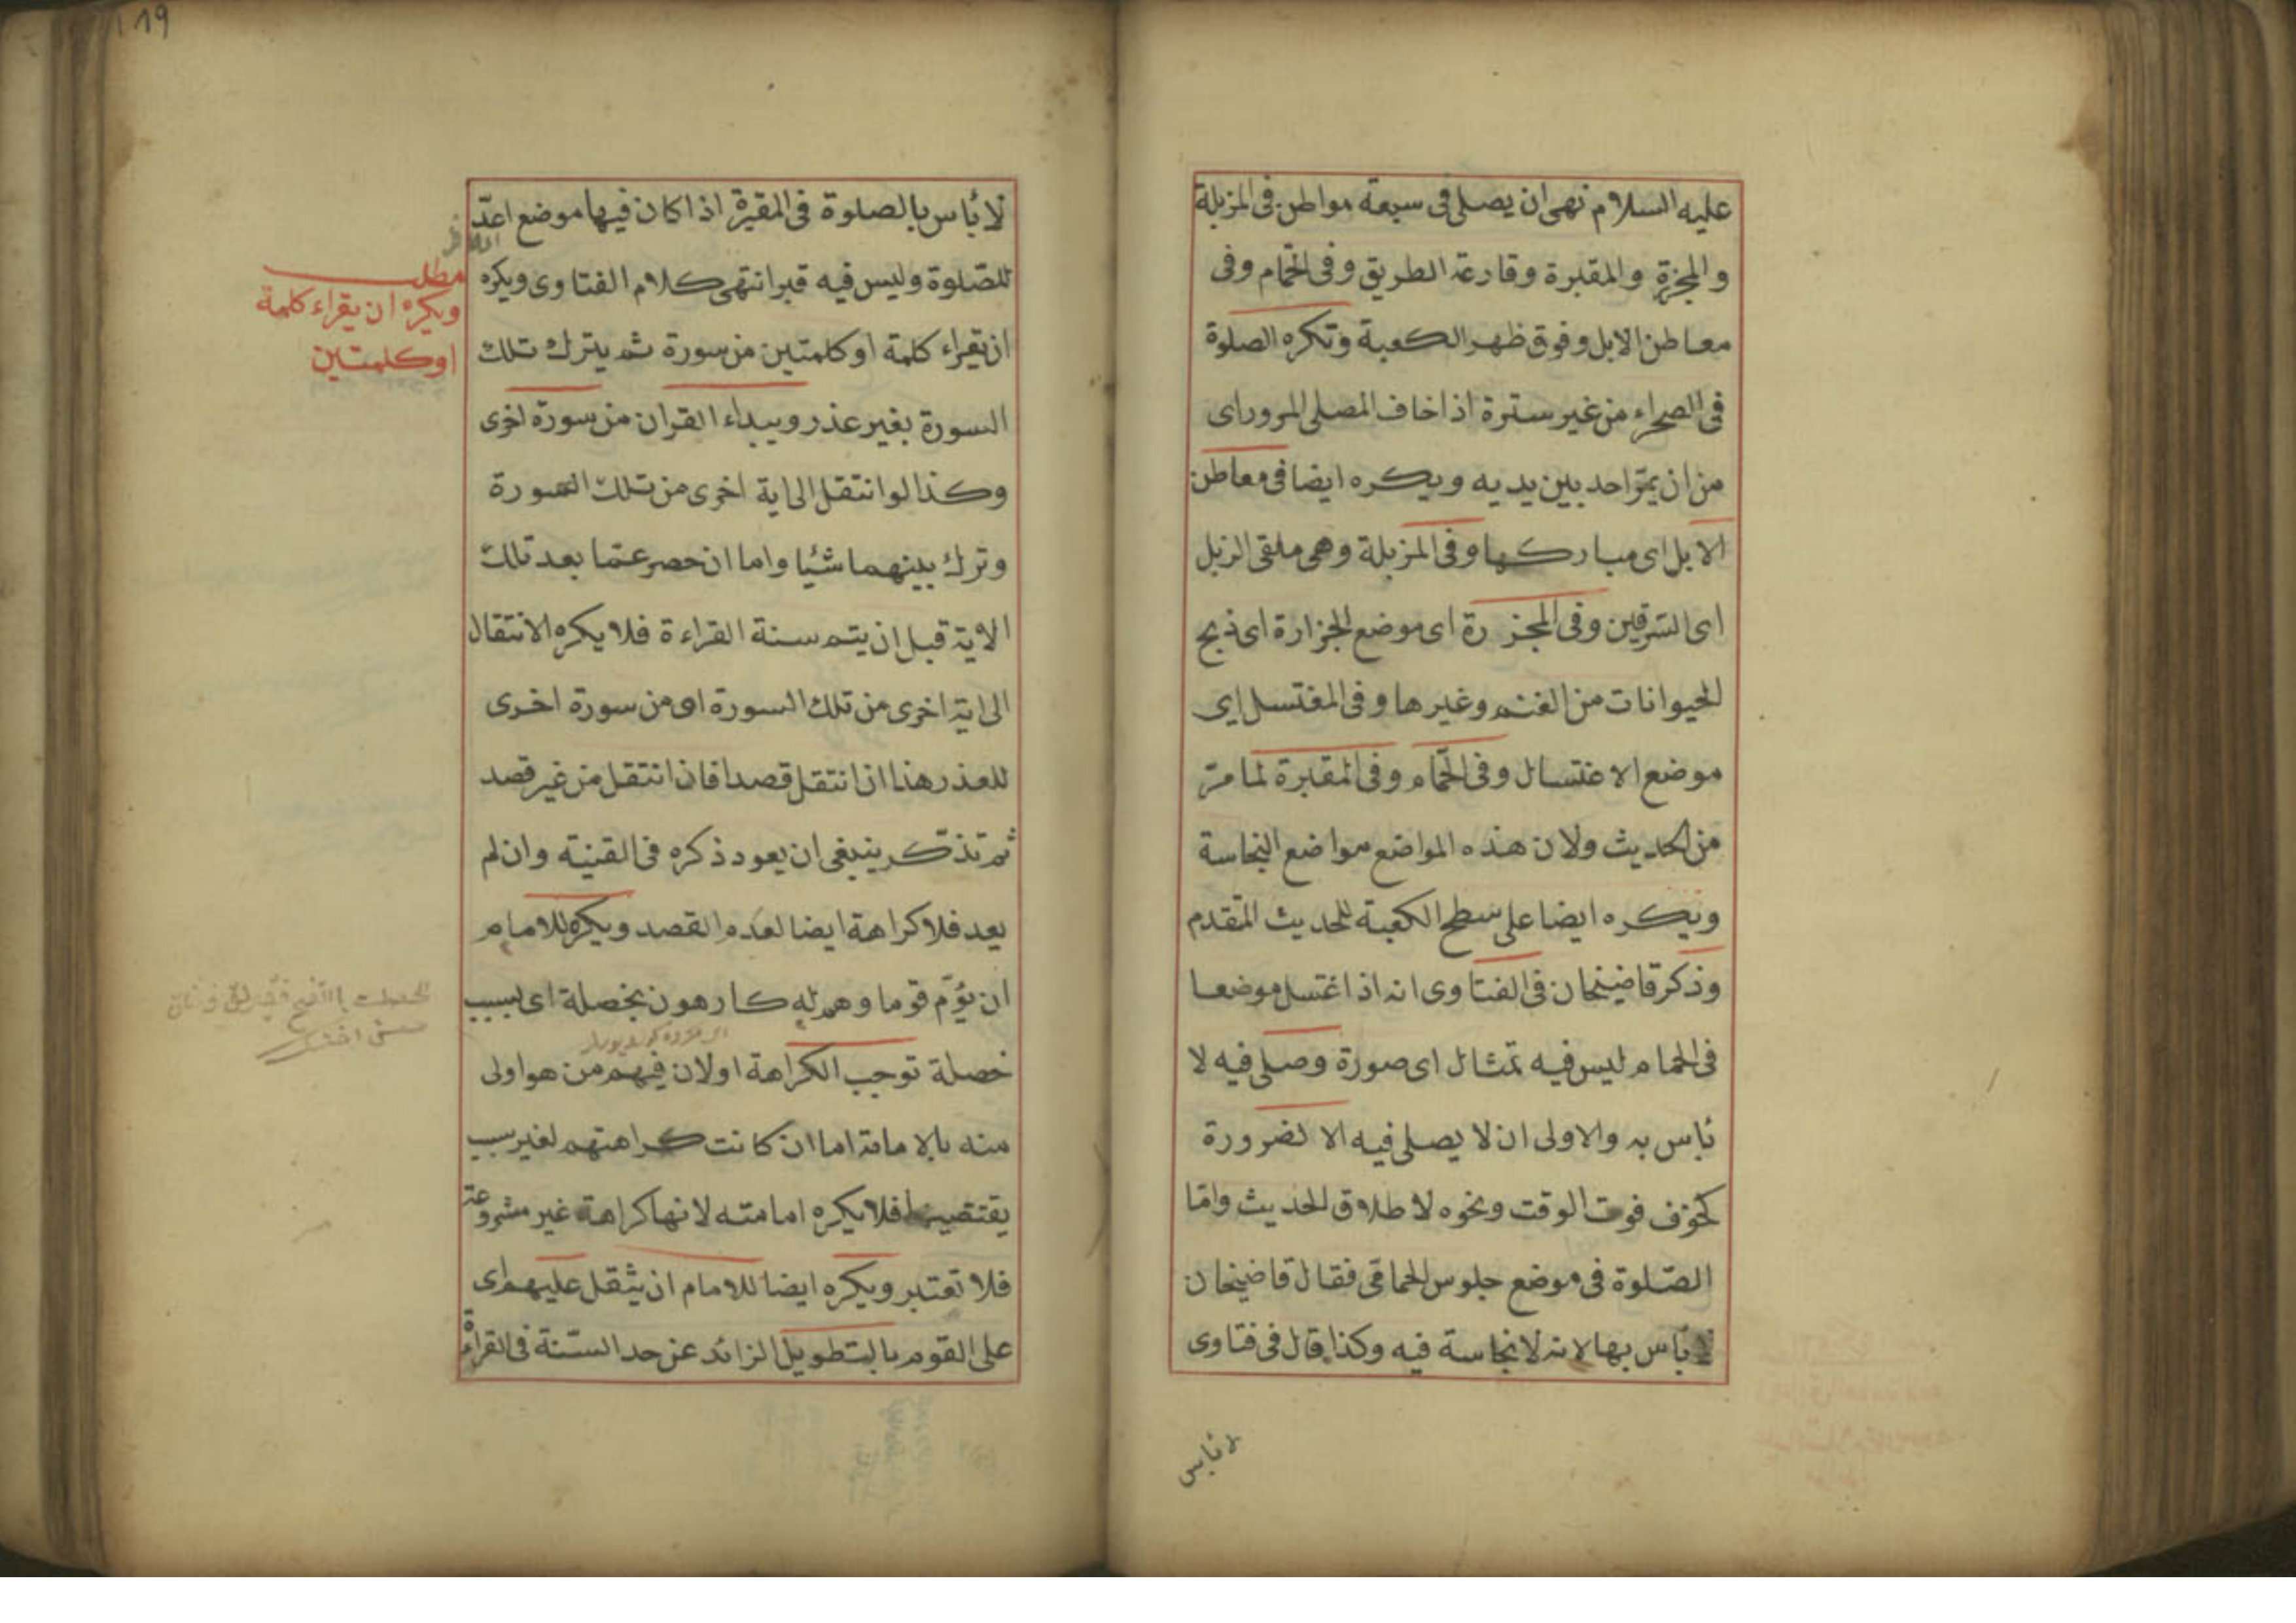 عليه السلام نهى ان يصلى فى سبعة مواطن فى المزبلة
والمجزرة والمقبرة وقارعة الطريق وفى الحمام وفى
معاطن الابل وفوق ظهر الكعبة وتكره الصلوة
فى الصحراء من غير سترة اذا خاف المصلى المرور اى
من ان يمر احد بين يديه ويكره ايضا فى معاطن
الابل اى مباركها وفى المزبلة وهى ملقى الزبل
اى السرقين وفى المجزرة اى موضع الجزارة اى ذبح
الحيوانات من الغنم وغيرها وفى المغتسل اى
موضع الاغتسال وفى الحمام وفى المقبرة لما مرّ
من الحديث ولان هذه المواضع مواضع النجاسة
ويكره ايضا على سطح الكعبة للحديث المتقدم
وذكر قاضيخان فى الفتاوى انه اذا غتسل موضعا
فى الحمام ليس فيه تمثال اى صورة وصلى فيه لا
بأس به والاولى ان لا يصلى فيه الا لضرورة
كخوف فوت الوقت ونحوه لاطلاق الحديث واما
الصّلوة فى موضع جلوس الحمامى فقال قاضيخان
لا بأس بها لانه لا نجاسة فيه وكذا قال فى فتاوى
لا بأس
119
لا بأس بالصلوة فى المقبرة اذا كان فيها موضع اعدّ
للصّلوة وليس فيه قبر انتهى كلام الفتاوى ويكره
ان يقراء كلمة او كلمتين من سورة ثم يترك تلك
السورة بغير عذر ويبداء القران من سورة اخرى
وكذا لو انتقل الى اية اخرى من تلك السورة
وترك بينهما شيئا واما ان حصر عمّا بعد تلك
الاية قبل ان يتم سنة القراءة فلا يكره الانتقال
الى اية اخرى من تلك السورة او من سورة اخرى
للعذر هذا ان انتقل قصدا فان انتقل من غير قصد
ثم تذكر ينبغى ان يعود ذكره فى القنية وان لم
يعد فلا كراهة ايضا لعدم القصد ويكره للامام
ان يؤمّ قوما وهم له كارهون بخصلة اى بسبب
خصلة توجب الكراهة او لان فيهم من هو اولى
منه بالامامة اما ان كانت كراهتهم لغير سبب
يقتضيها فلا يكره امامته لانها كراهة غير مشروعة
فلا تعتبر ويكره ايضا للامام ان يثقل عليهم اى
على القوم بالتطويل الزائد عن حد السنّة فى القراءة
مطلب
ويكره ان يقراء كلمة
او كلمتين